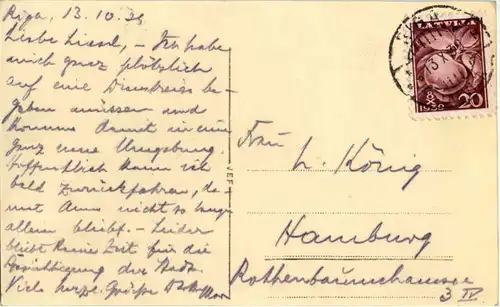 Riga, 13.10.39
Liebe Liesel, – Ich habe
mich ganz plötzlich
auf eine Dienstreise be-
geben müssen und
komme damit in eine
ganz neue Umgebung.
Hoffentlich kann ich
bald zurückfahren, da-
mit Anna nicht so lange
allein bleibt. – Leider
bleibt keine Zeit für die
Besichtigung der Stadt.
Viele herzl. Grüße
LATVIJA
20
1939
VEF
Frau
L. König
Hamburg
Rothenbaumchaussee
3 IV